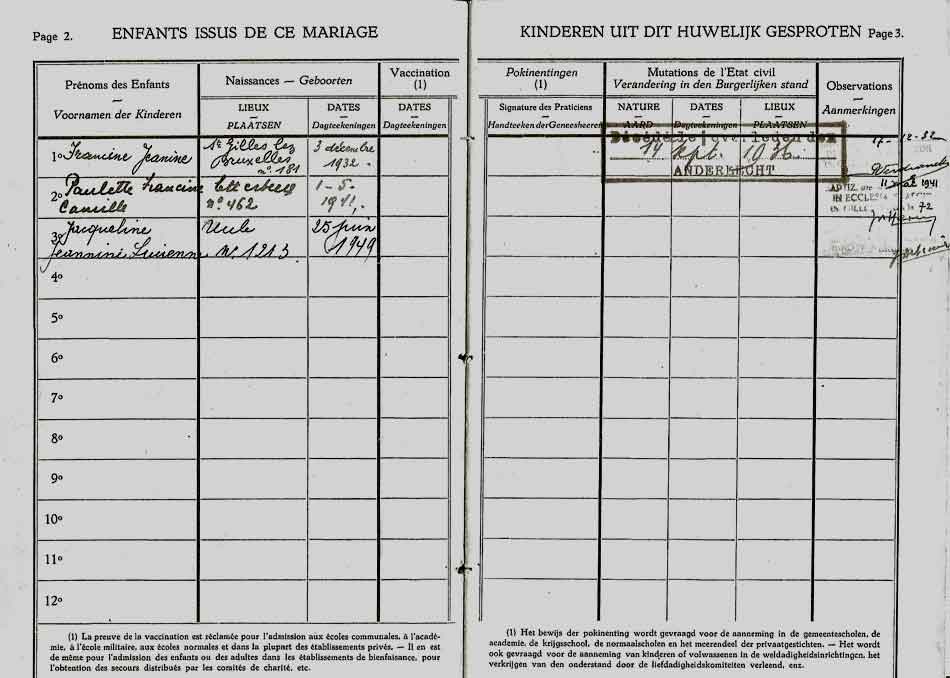 Page 2.
ENFANTS ISSUS DE CE MARIAGE
Prénoms des Enfants
—
Voornamen der Kinderen
Naissances — Geboorten
LIEUX
—
PLAATSEN
DATES
—
Dagteekeningen
Vaccination
(1)
DATES
—
Dagteekeningen
1º Francine Jeanine
St Gilles lez
Bruxelles
nº 181
3 décembre
1932.
2º Paulette Francine
Camille
Etterbeek
nº 462
1-5-
1941.
3º Jacqueline
Jeannine Lucienne
Uccle
Nº 1213
25 juin
1949
4º
5º
6º
7º
8º
9º
10º
11º
12º
(1) La preuve de la vaccination est réclamée pour l'admission aux écoles communales, à l'acadé-
mie, à l'école militaire, aux écoles normales et dans la plupart des établissements privés. — Il en est
de même pour l'admission des enfants ou des adultes dans les établissements de bienfaisance, pour
l'obtention des secours distribués par les comités de charité, etc.
KINDEREN UIT DIT HUWELIJK GESPROTEN
Page 3.
Pokinentingen
(1)
Signature des Praticiens
—
Handteeken der Geneesheeren
Mutations de l'Etat civil
Verandering in den Burgerlijken stand
NATURE
—
AARD
DATES
—
Dagteekeningen
LIEUX
—
PLAATSEN
Observations
—
Aanmerkingen
Décédé(e) overleden
14 sept. 1936.
ANDERLECHT
17-12-32
11 mai 1941
IN ECCLESIA
72
(1) Het bewijs der pokinenting wordt gevraagd voor de aanneming in de gemeentescholen, de
academie, de krijgsschool, de normaalscholen en het merendeel der privaatgestichten. — Het wordt
ook gevraagd voor de aanneming van kinderen of volwassenen in de weldadigheidsinrichtingen, het
verkrijgen van den onderstand door de liefdadigheidskomiteiten verleend, enz.